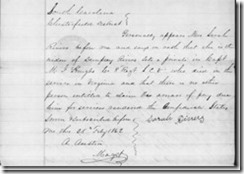 South Carolina
Chesterfield District
Personally appears Mrs Sarah
Rivers before me and says on oath that she is the
widow of Sampson Rivers late a private in Capt
M. J. Hough's Co. 8 Regt S.C.V. who died in the
service in Virginia and that there is no other
person entitled to claim the arrears of pay due
him for services rendered the Confederate States
Sworn & subscribed before Sarah Rivers
me this 22 Feby 1862
A. Austin
Magst